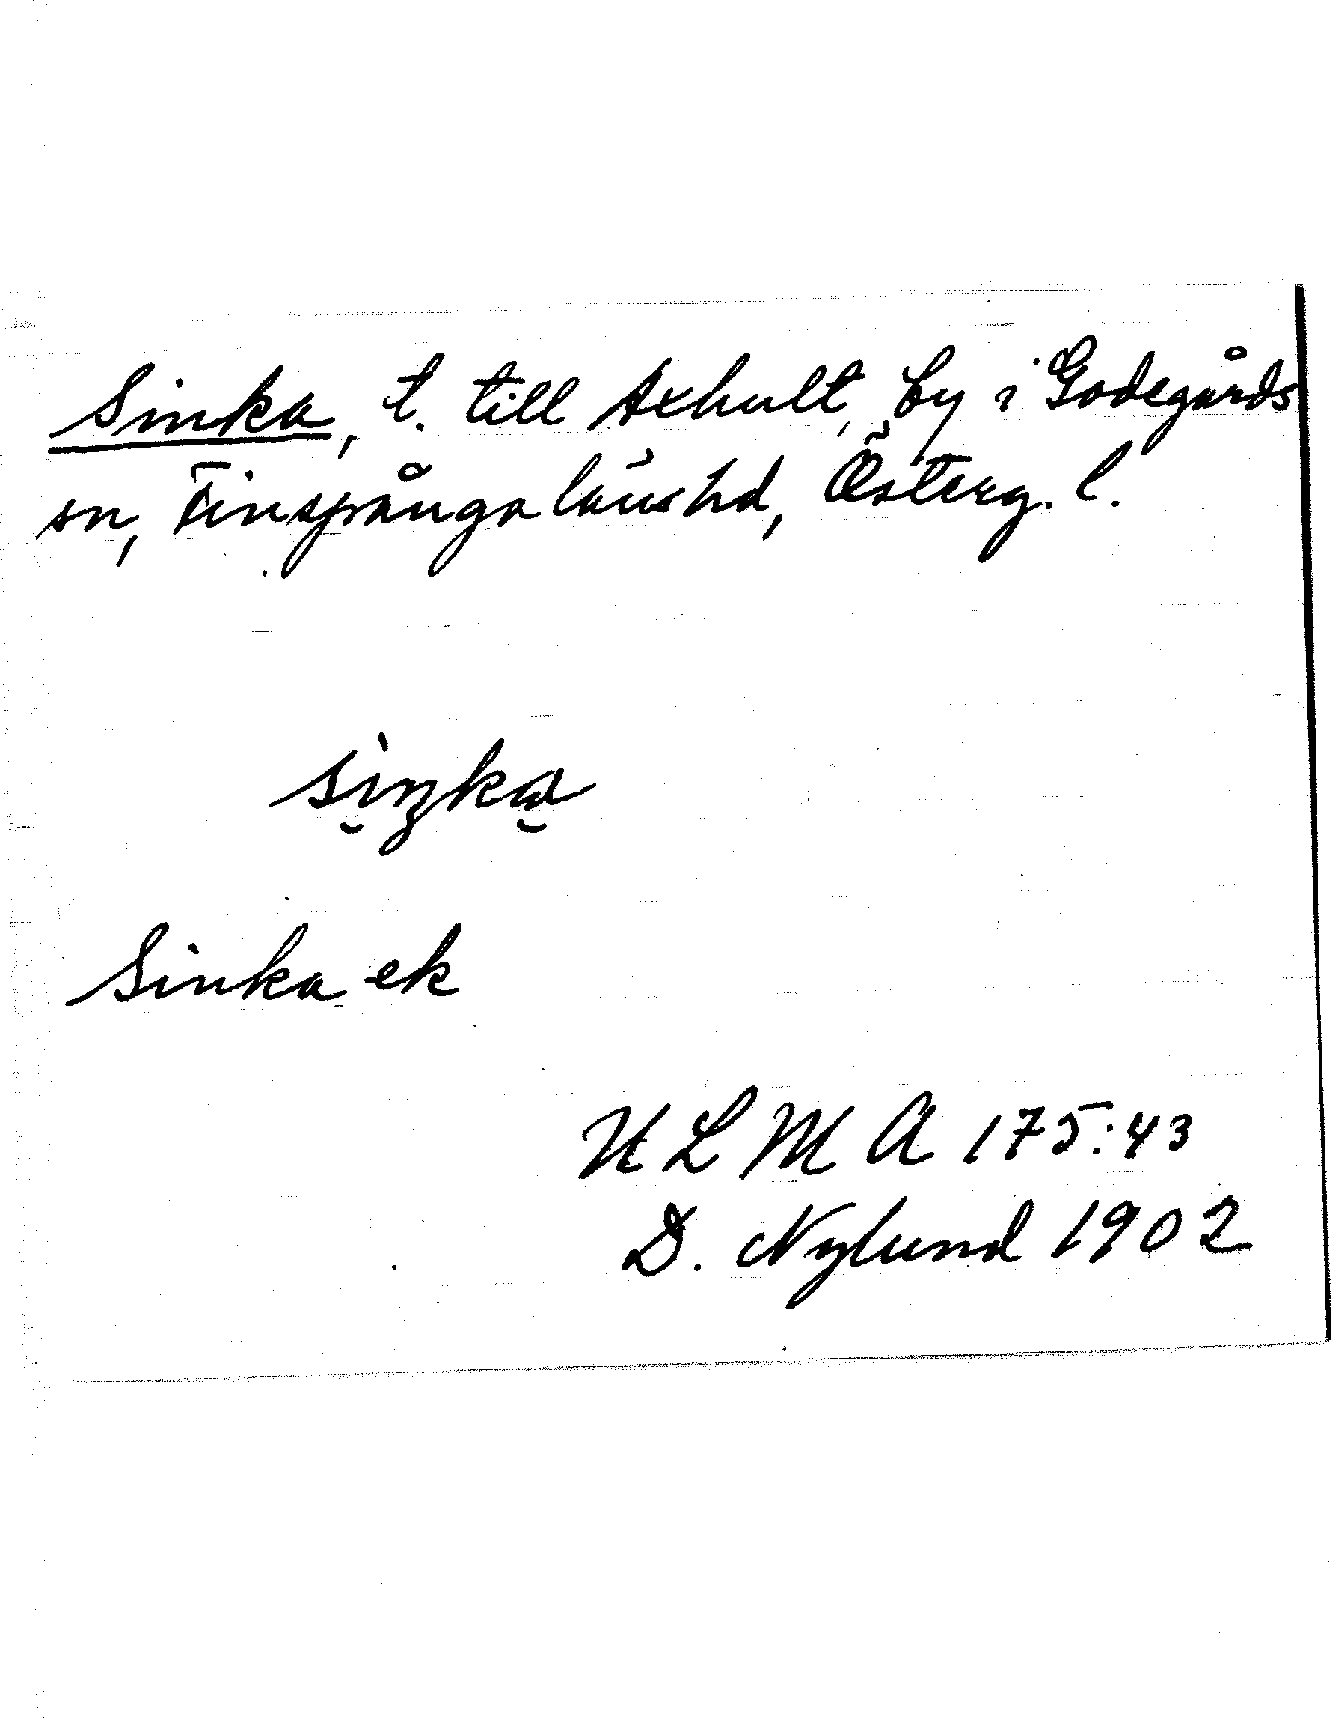 Sinka, t. till Axhult, by i Godegårds
sn, Finspånga läns hd, Österg. l.
sìŋka
Sinka ek
ULMA 175:43
D. Nylund 1902